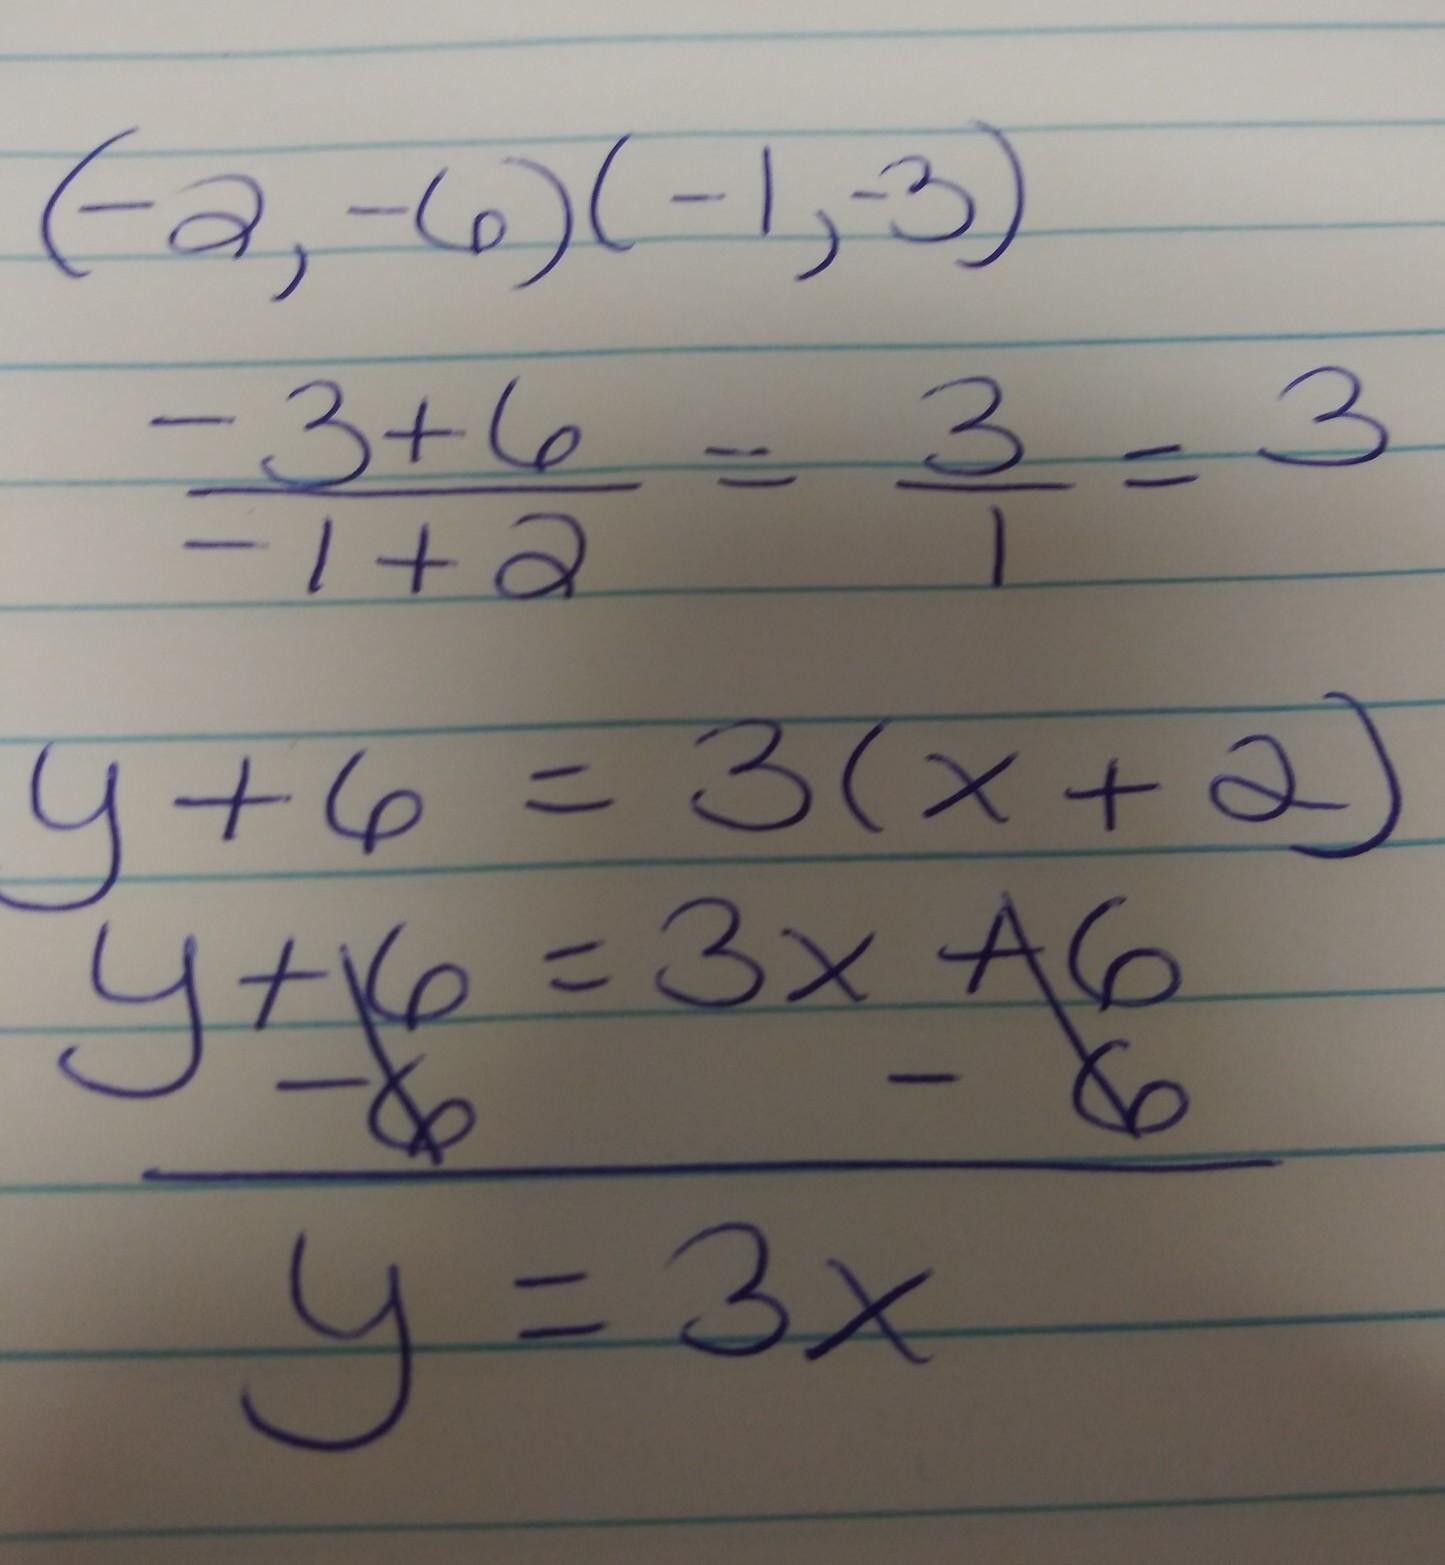 (-2, -6)(-1, -3)
-3+6 = 3 = 3
-1+2 1
y+6 = 3(x+2)
y+6 = 3x+6
-6 -6
y = 3x